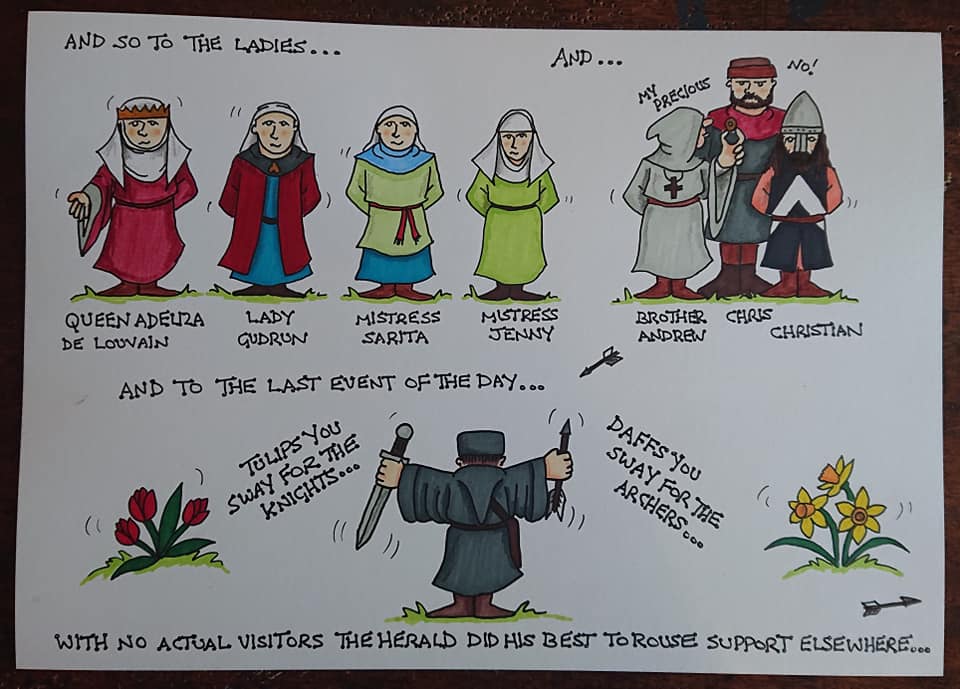 AND SO TO THE LADIES...
AND...
MY
PRECIOUS
NO!
QUEEN ADELIZA
DE LOUVAIN
LADY
GUDRUN
MISTRESS
SARITA
MISTRESS
JENNY
BROTHER
ANDREW
CHRIS
CHRISTIAN
AND TO THE LAST EVENT OF THE DAY...
TULIPS YOU
SWAY FOR THE
KNIGHTS...
DAFFS YOU
SWAY FOR THE
ARCHERS...
WITH NO ACTUAL VISITORS THE HERALD DID HIS BEST TO ROUSE SUPPORT ELSEWHERE...